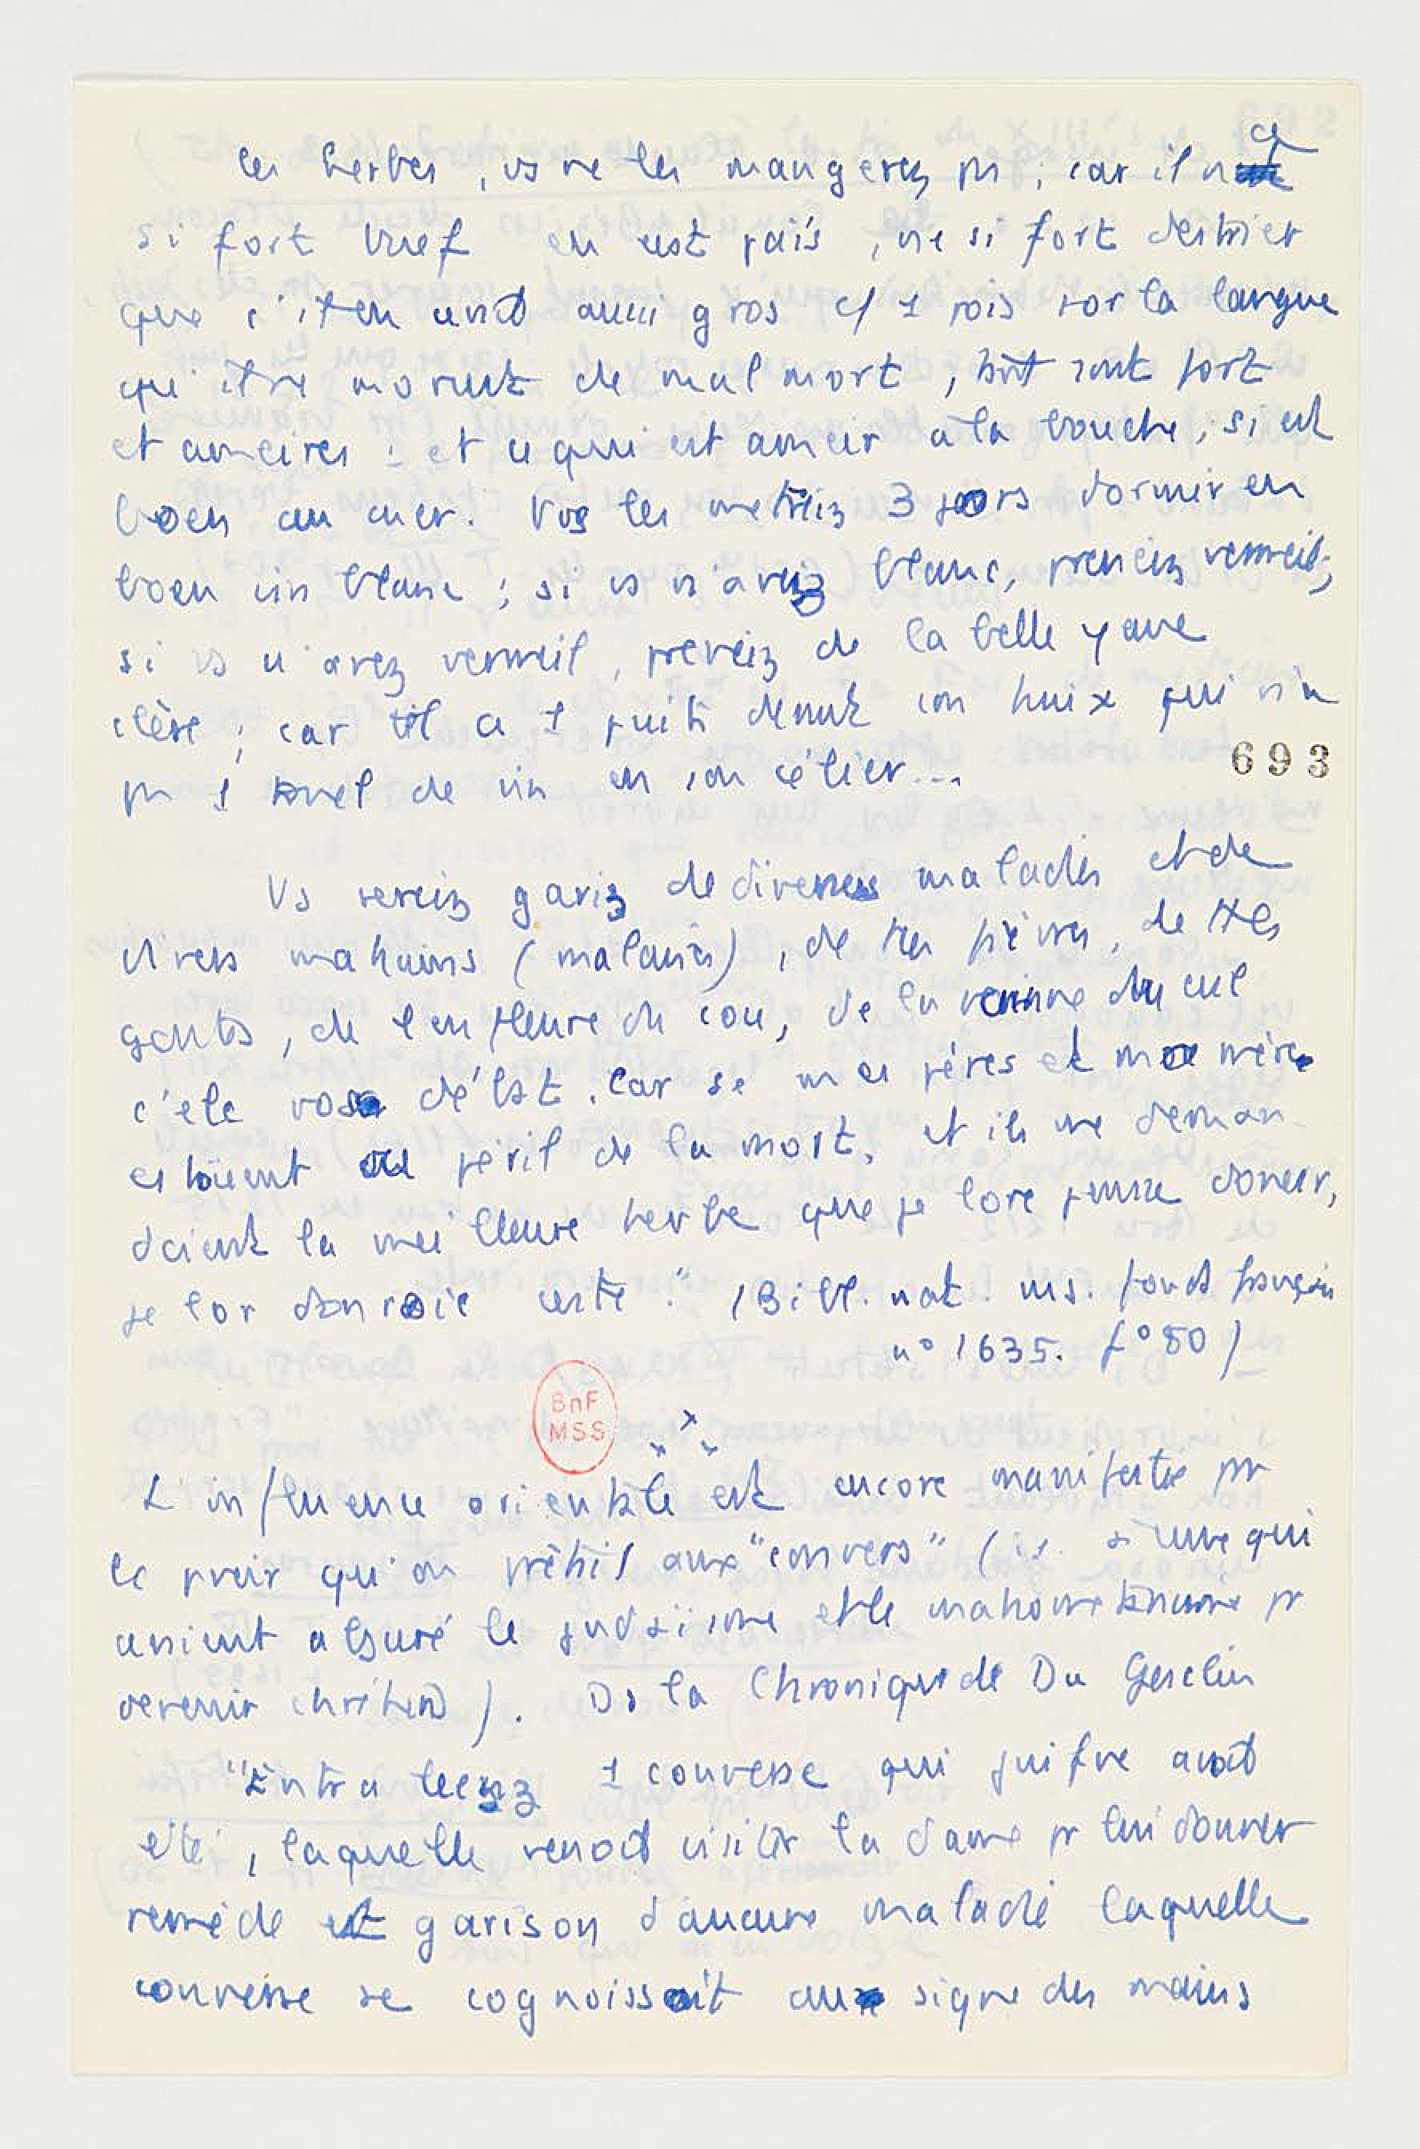 les herbes, vs ne les mangerez ps ; car il n'a
si fort buef en cest païs, ne si fort destrier
que s'il en avoit aussi gros c/ 1 pois sor la langue
qu'il ne morust de mal mort, tant sont fort
et ameires : et ce qui est ameir à la bouche, si est
boen au cuer. Vos les metreiz 3 jors dormir en
boen vin blanc ; si vs n'avez blanc, preneiz vermeil ;
si vs n'avez vermeil, preneiz de la belle yaue
clère ; car tel a 1 puits devant son huix qui n'a
ps 1 tonel de vin en son célier...
693
Vs sereiz gariz de diverses maladies et de
divers mahains (malaises), de ttes fièvres, de ttes
gouttes, de l'enfleure du cou, de la vaine du cul
s'ele vos débat. Car se mes pères et ma mère
estoient au péril de la mort, et ils me deman-
doient la meilleure herbe que je lore puisse doneir,
je lor donroie ceste." (Bibl. nat. ms. fonds français
n° 1635. f° 80)
BnF
MSS
x
x x
L'influence orientale est encore manifestée pr
le pouvoir qu'on prêtait aux "convers" (i.e. à ceux qui
avaient abjuré le judaïsme et le mahométanisme pr
devenir chrétiens). Ds la Chronique de Du Gesclin
"Entra leenz 1 converse qui juifve avoit
été, laquelle venoit visiter la dame pr lui donner
remède et garison d'aucune maladie laquelle
converse se cognoissoit aux signe des mains